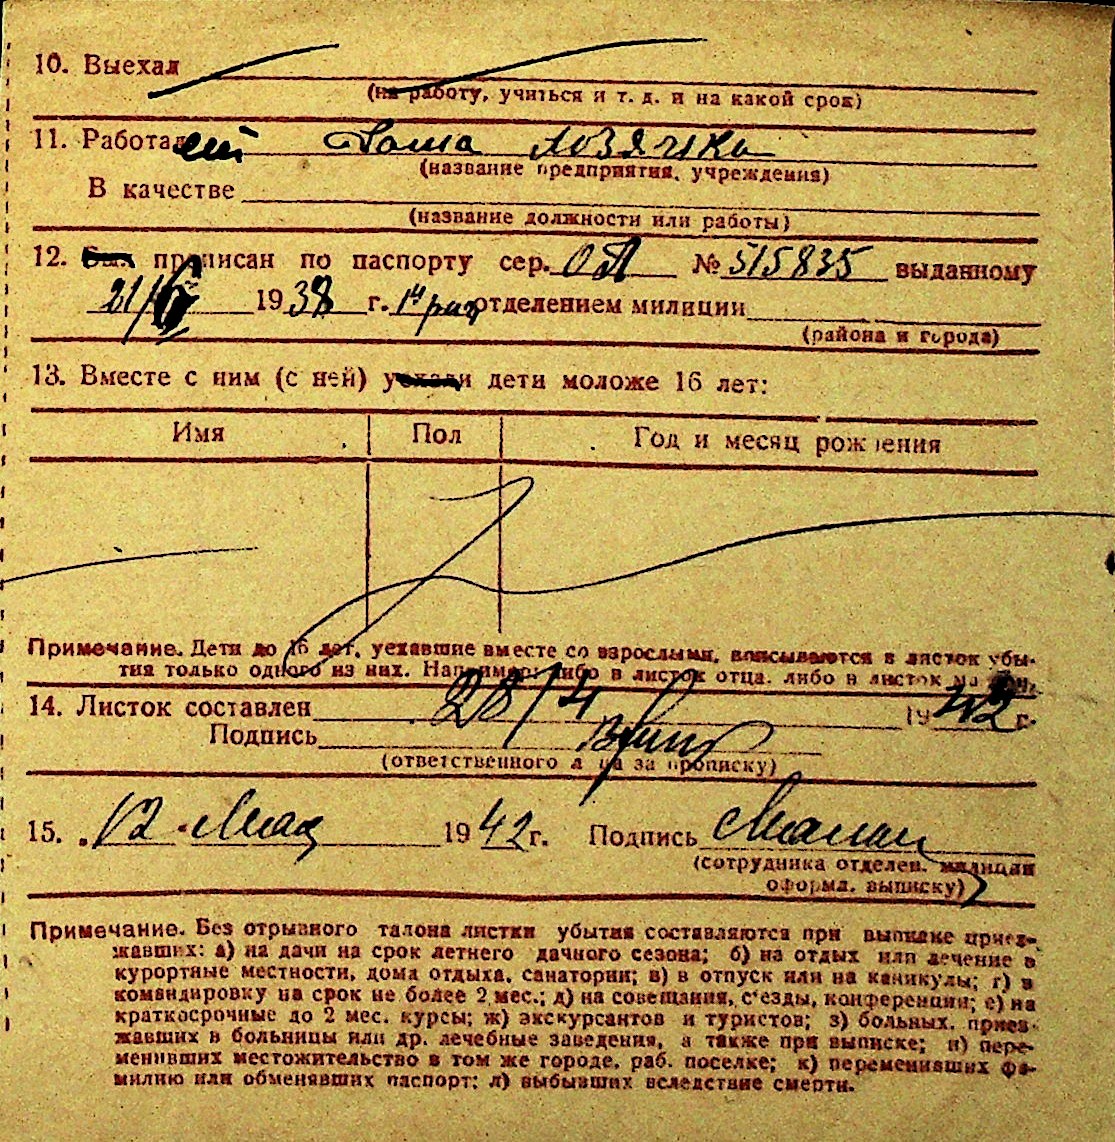 10. Выехал
(на работу, учиться и т. д. и на какой срок)
11. Работа Дома хозяйка
(название предприятия, учреждения)
В качестве
(название должности или работы)
12. Был прописан по паспорту сер. № 515835 выданному
21/ 1938 г. 1м отделением милиции
(района и города)
13. Вместе с ним (с ней) уехали дети моложе 16 лет:
Имя Пол Год и месяц рождения
Примечание. Дети до 16 лет, уехавшие вместе со взрослыми, вписываются в листок убы-
тия только одного из них. Например: либо в листок отца, либо в листок
14. Листок составлен 28/4 1942 г.
Подпись
(ответственного лица за прописку)
15. „12 Мая 1942 г. Подпись
(сотрудника отделен. милиции
оформл. выписку)
Примечание. Без отрывного талона листки убытия составляются при выписке приез-
жавших: а) на дачи на срок летнего дачного сезона; б) на отдых или лечение в
курортные местности, дома отдыха, санатории; в) в отпуск или на каникулы; г) в
командировку на срок не более 2 мес.; д) на совещания, с'езды, конференции; е) на
краткосрочные до 2 мес. курсы; ж) экскурсантов и туристов; з) больных, приез-
жавших в больницы или др. лечебные заведения, а также при выписке; и) пере-
менивших местожительство в том же городе, раб. поселке; к) переменивших фа-
милию или обменявших паспорт; л) выбывших вследствие смерти.